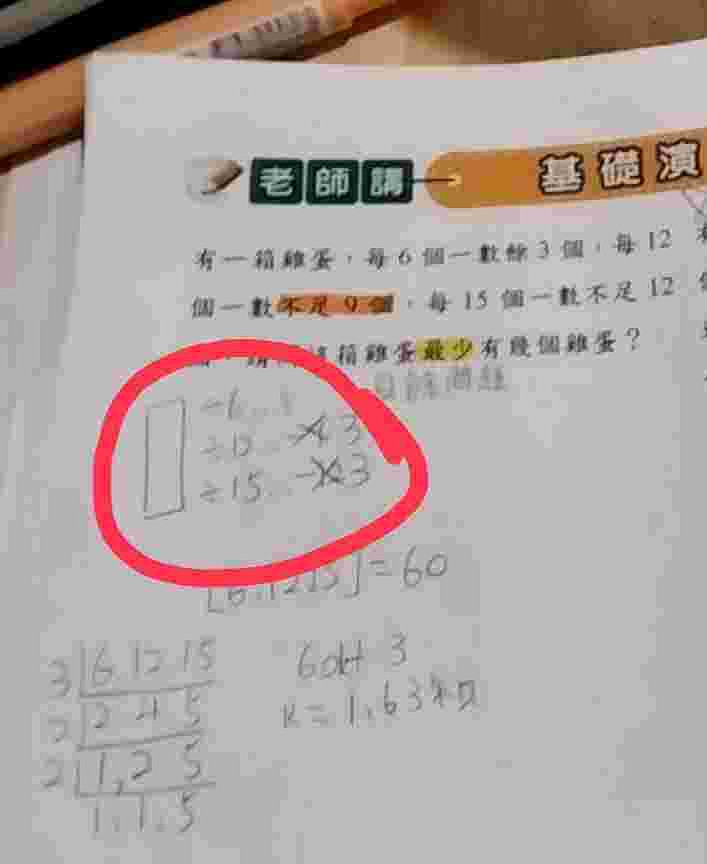 老師講 基礎演
有一箱雞蛋，每6個一數餘3個，每12
個一數不足9個，每15個一數不足12
箱雞蛋最少有幾個雞蛋？
÷6...
÷12... 3
÷15... 3
]=60
3 6 12 15
2 2 4 5
2 1, 2 5
1, 1, 5
60k+3
k=1, 63